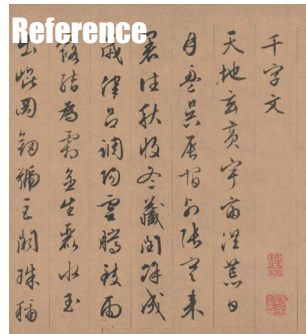 Reference
千字文
天地玄黃宇宙洪荒日
月盈昃辰宿列張寒來
暑往秋收冬藏閏餘成
歲律呂調陽雲騰致雨
露結為霜金生麗水玉
出崑岡劒號巨闕珠稱